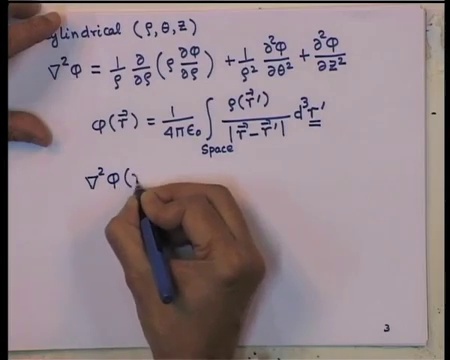 ylindrical (ρ, θ, z)
∇²φ = 1/ρ ∂/∂ρ (ρ ∂φ/∂ρ) + 1/ρ² ∂²φ/∂θ² + ∂²φ/∂z²
φ(r⃗) = 1/4πϵ₀ ∫Space ρ(r⃗′)/|r⃗−r⃗′| d³r′
∇²φ(
3